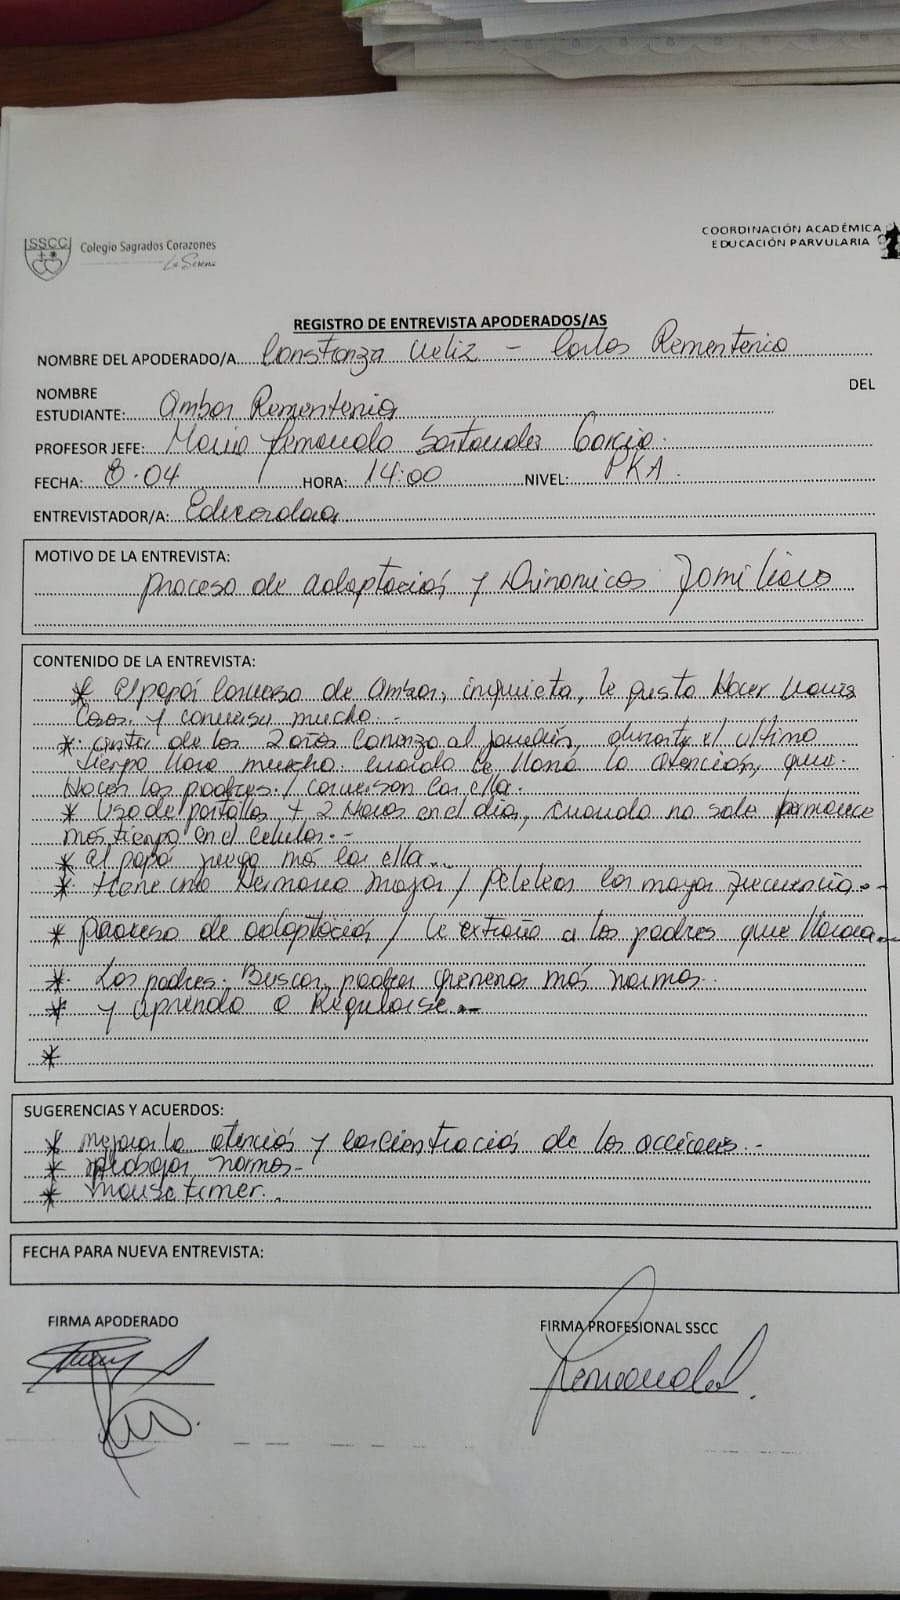 SSCC
Colegio Sagrados Corazones
La Serena
COORDINACIÓN ACADÉMICA
EDUCACIÓN PARVULARIA
REGISTRO DE ENTREVISTA APODERADOS/AS
NOMBRE DEL APODERADO/A Constanza Veliz - Carlos Rementeria
NOMBRE DEL
ESTUDIANTE: Ambar Rementeria
PROFESOR JEFE: Maria Fernanda Santander Garcia.
FECHA: 8.04 HORA: 14:00 NIVEL: PKA.
ENTREVISTADOR/A: Educadora
MOTIVO DE LA ENTREVISTA:
proceso de adaptación y Dinamicas familiares
CONTENIDO DE LA ENTREVISTA:
* El papá conversa de Ambar, inquieta, le gusta Hacer
Cosas y conversa mucho.-
*. antes de los 2 años comenzo al jardín, durante el ultimo
tiempo llora mucho. cuando se llama la atención, que
Hacen los padres / conversan con ella.
* Uso de pantalla + 2 Horas en el día, cuando no sale permanece
más tiempo en el celular.-
* El papá juega más con ella...
* tiene una Hermana mayor / Pelelean con mayor frecuencia.-
* proceso de adaptación / le extraña a los padres que llorara.-
* Los padres: Buscan, padres más normas..
* y aprenda a Regularse.-
*
SUGERENCIAS Y ACUERDOS:
* mejorar la atención y concientración de las acciones.-
* trabajar normas.-
* mouse timer..
FECHA PARA NUEVA ENTREVISTA:
FIRMA APODERADO
FIRMA PROFESIONAL SSCC